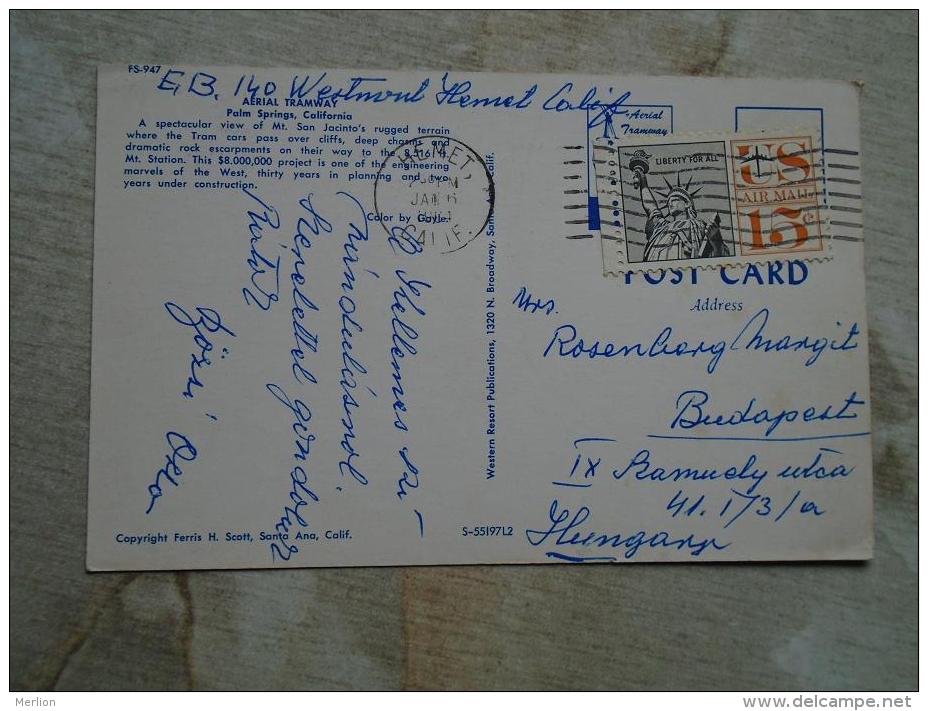 FS-947
E.B. 140 Westmont Hemet Calif
AERIAL TRAMWAY
Palm Springs, California
A spectacular view of Mt. San Jacinto's rugged terrain
where the Tram cars pass over cliffs, deep chasms and
dramatic rock escarpments on their way to the 8,516 ft.
Mt. Station. This $8.000,000 project is one of the engineering
marvels of the West, thirty years in planning and two
years under construction.
Color by Gayle.
HEMET,
PM
JAN 6
CALIF.
Aerial
Tramway
LIBERTY FOR ALL
US
AIR MAIL
15¢
POST CARD
Address
Mrs.
Rosenberg Margit
Budapest
IX Szamuely utca
41. I/3/a
Hungary
Kellemes
szeretettel gondolunk
Rátok
Western Resort Publications, 1320 N. Broadway, Santa Ana, Calif.
Copyright Ferris H. Scott, Santa Ana, Calif.
S-55197L2
Merlion
www.delcampe.net